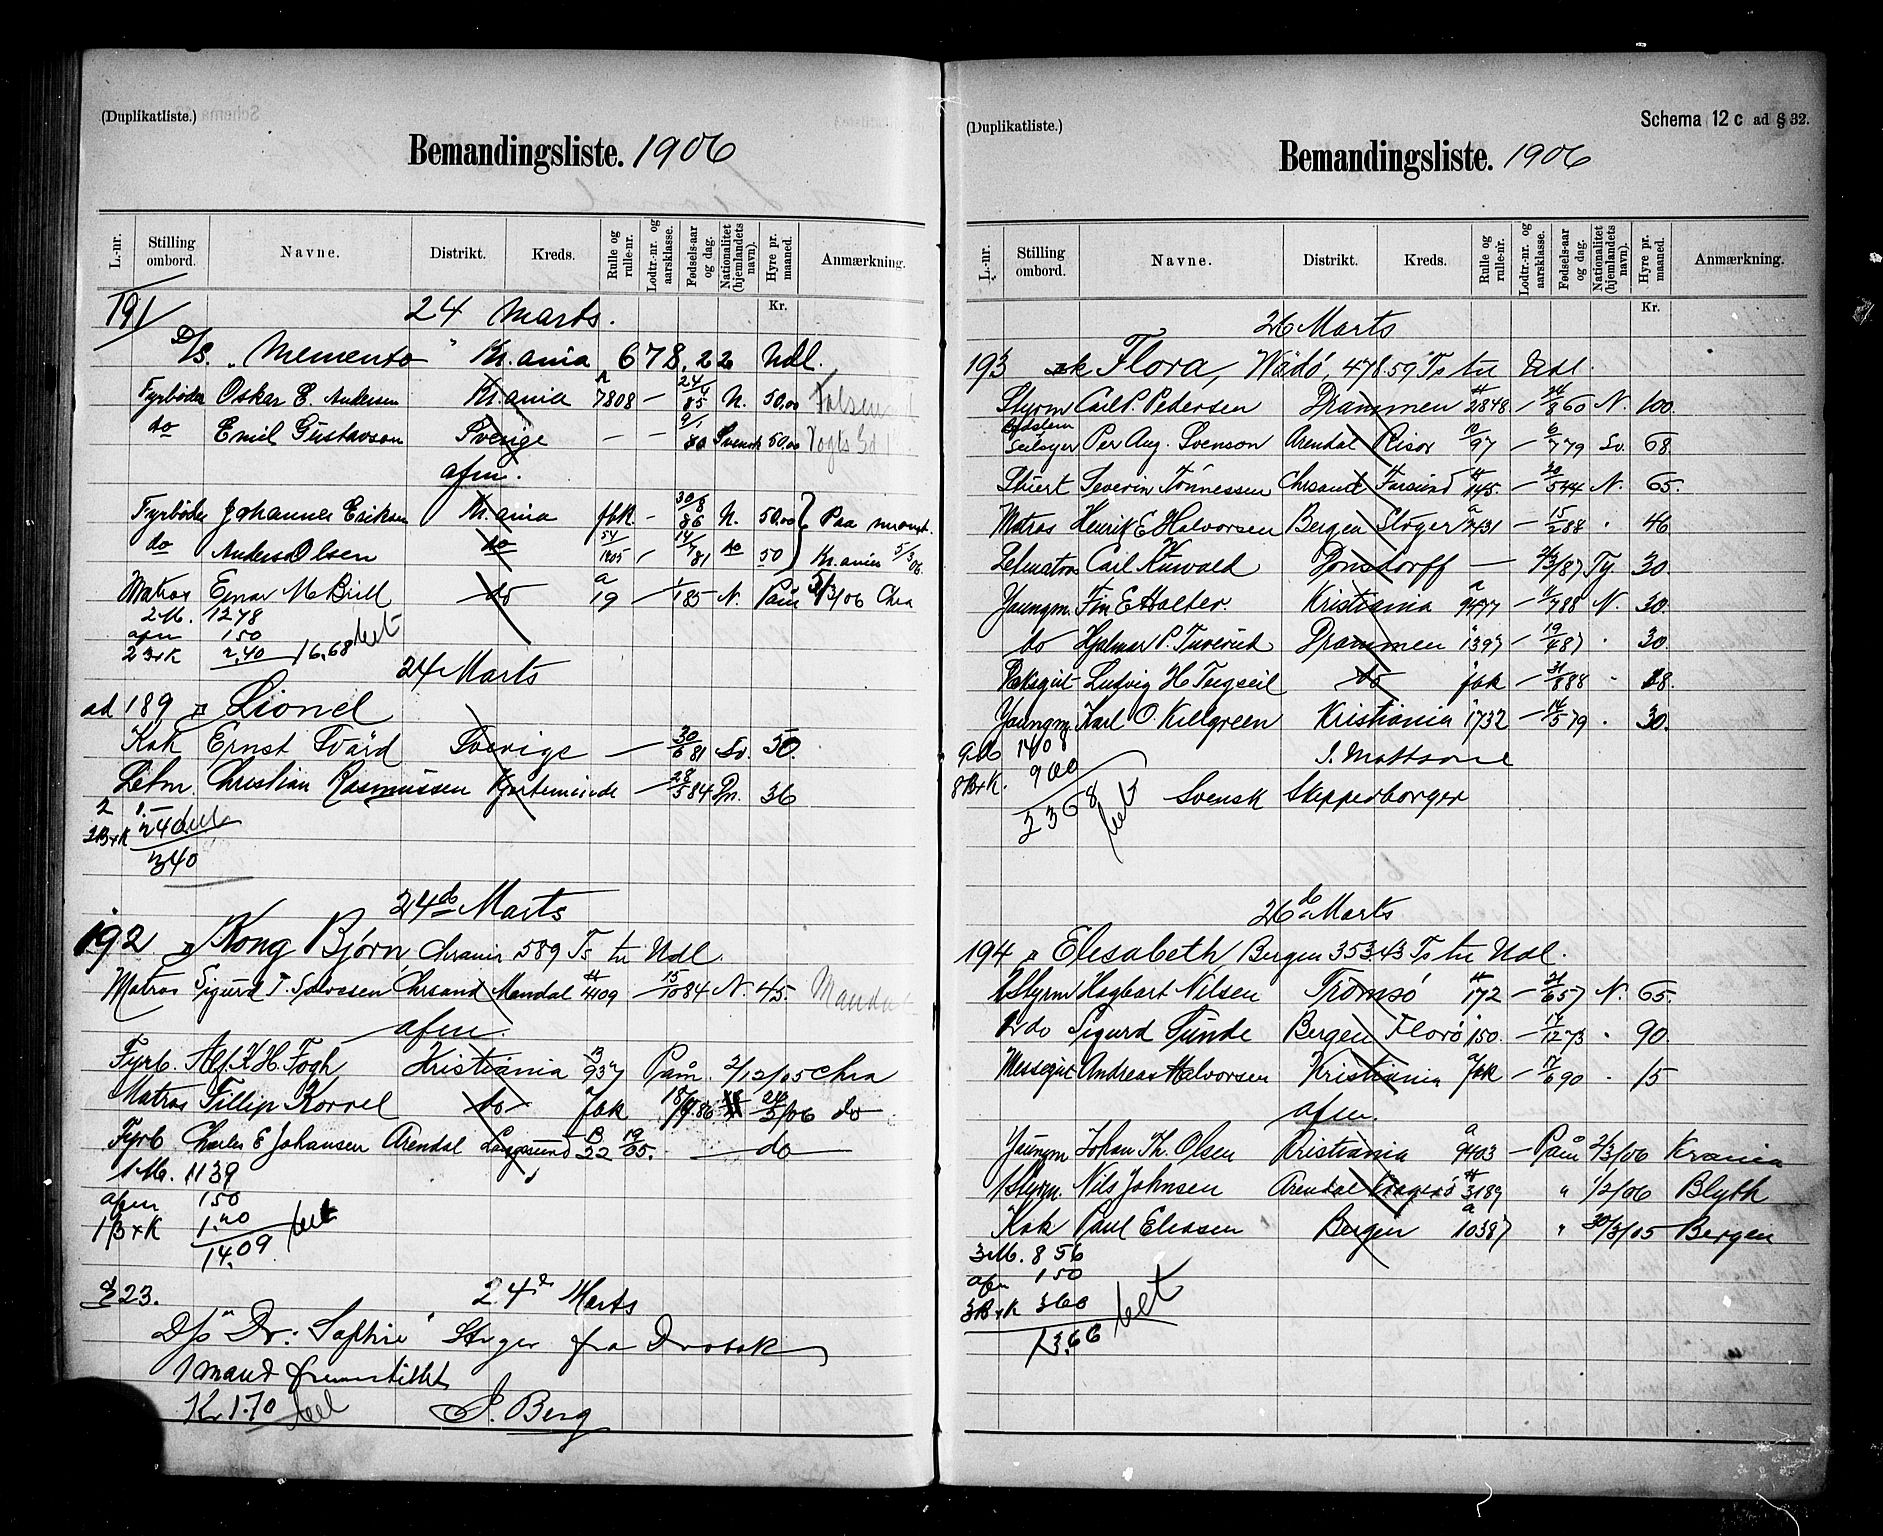 (Duplikatliste.)
Bemandingsliste. 1906
L.-nr. Stilling ombord. Navne. Distrikt. Kreds. Rulle og rulle-nr. Lodtr.-nr. og aarsklasse. Fødsels-aar og dag. Nationalitet (hjemlandets navn). Hyre pr. maaned. Anmærkning.
Kr.
191/ 24 Marts.
D/S. "Memento" Kr.ania 678,22 Udl.
Fyrbøder Oskar E. Andersen Kr.ania A 7808 — 24/4 85 N. 50,00
do Emil Gustavson Sverige — — 9/1 80 Svensk 50,00 Vogts Gd
afm.
Fyrbøder Johannes Erikson Kr.ania fbk — 30/8 86 N. 50,00 Paa mønst.
do Anders Olsen do 54/1905 — 14/7 81 do 50 Kr.ania 5/3 06
Matros Einar M Brill do a 19 — 1/1 85 N. Paam 3/3/06 Chra
2 M. 1278
afm 150
2 B+K 2,40 16,68 bet
24 Marts
ad 189 Lionel
Kok Ernst Svärd Sverige — 30/6 81 Sv. 50.
Letm. Christian Rasmussen Kjerteminde — 28/5 84 Dn. 36
2 1.—
2B+K 240 bet
340
24de Marts
192 Kong Bjørn, Chrania 589 Ts til Udl.
Matros Sigurd T. Salvesen Chrsand Mandal H 4109 — 15/10 84 N. 45. Manda
afm.
Fyrb. Alf. K. H. Fogh Kristiania B 937 Paam. 2/12/05 Chra
Matros Fillip Korrel do fbk 18/4 86 3/06 do
Fyrb Charles E Johansen Arendal Langesund B 22 19/05. — do —
1 M. 1139
afm 150
1 B+K 1.20 bet
14.09
§ 23. 24de Marts
D/s "Dr: Sophie" Stryer fra Drøbak
1 mand fremstillet
Kr 1.70 bet S. Berg
(Duplikatliste.)
Schema 12 c ad § 32.
Bemandingsliste. 1906
L.-nr. Stilling ombord. Navne. Distrikt. Kreds. Rulle og rulle-nr. Lodtr.-nr. og aarsklasse. Fødsels-aar og dag. Nationalitet (hjemlandets navn). Hyre pr. maaned. Anmærkning.
Kr.
26 Marts
193 Flora, Wådö, 478.59 Ts til Udl.
Styrm Carl P. Pedersen Drammen H 2848 — 24/8 60 N. 100.
Seilsyer Per Aug. Svenson Arendal Risør 97 — 6/7 79 Sv. 68.
Stuert Severin Tønnessen Chrsand Farsund H 145. — 30/5 44 N. 65.
Matros Henrik E Halvorsen Bergen a 2431 — 15/2 88 " 46
Letmatros Carl Kuwald — 2/3/87 Ty. 30.
Jaungm. Fin E Halter. Kristiania a 9477 — 1/7 88 N. 30.
do Hjalmar P. Tuverud Drammen 1397 — 19/4 87 " 30.
Dæksgut Ludvig H Tegseil do fbk — 31/8 88 " 28.
Jaungm. Karl O. Killgreen Kristiania 1732 — 14/5 79 " 30.
9 M 1408
8B+K. 960
2368 bet
J. Mattsone
Svensk Skipperborger
26de Marts
194 Elisabeth Bergen 353.43 Ts til Udl.
2 Styrm Hagbart Nilsen Tromsø H 172 — 21/6 57 N. 65.
do Sigurd Tunde Bergen Florø 150. — 17/12 73 " 90.
Messegut Andreas Halvorsen Kristiania fbk — 17/6 90 " 15
afm.
Jaungm Johan Th. Olsen Kristiania a 9403 — Paam 2/3/06 Krania
1 Styrm. Nils Johnsen Arendal Kragerø H 3189 " 1/2/06 Blyth
Kok Paul Eliasen Bergen a 10387 " 30/3/05 Bergen
3 M. 856
afm 150
3B+K 360
1366 bet